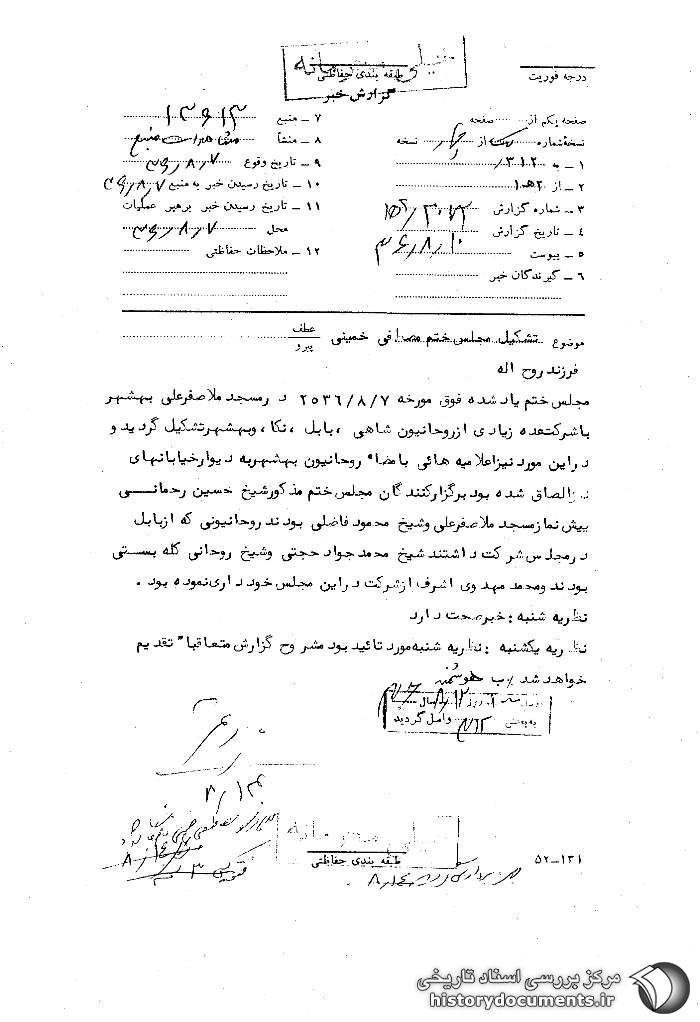 خیلی محرمانه
طبقه بندی حفاظتی
درجه فوریت
گزارش خبر
صفحه یکم از صفحه
نسخه شماره یک از نسخه
۱ ـ به ۳۱۲
۲ ـ از ۲ه‍۱
۳ ـ شماره گزارش
۴ ـ تاریخ گزارش ۳۶/۸/۱۰
۵ ـ پیوست
۶ ـ گیرندگان خبر
۷ ـ منبع
۸ ـ منشأ مشاهدات منبع
۹ ـ تاریخ وقوع ۳۶/۸/۷
۱۰ ـ تاریخ رسیدن خبر به منبع ۳۶/۸/۷
۱۱ ـ تاریخ رسیدن خبر برهبر عملیات
محل ۳۶/۸/۷
۱۲ ـ ملاحظات حفاظتی
موضوع تشکیل مجلس ختم مصطفی خمینی عطف
پیرو
فرزند روح اله
مجلس ختم یاد شده فوق مورخه ۲۵۳۶/۸/۷ در مسجد ملاصفرعلی بهشهر
با شرکت عده زیادی از روحانیون شاهی ، بابل ، نکا ، وبهشهر تشکیل گردید و
در این مورد نیز اعلامیه هائی بامضاء روحانیون بهشهر به دیوار خیابانهای
الصاق شده بود برگزارکنندگان مجلس ختم مذکور شیخ حسین رحمانی
پیش نماز مسجد ملاصفرعلی وشیخ محمود فاضلی بودند روحانیونی که از بابل
در مجلس شرکت داشتند شیخ محمد جواد حجتی وشیخ روحانی کله بستی
بودند ومحمد مهدوی اشرف از شرکت در این مجلس خود داری نموده بود .
نظریه شنبه : خبر صحت دارد
نظریه یکشنبه : نظریه شنبه مورد تائید بود مشروح گزارش متعاقبا" تقدیم
خواهد شد
به بخش ۳۱۲ واصل گردید
۸/۱۴
طبقه بندی حفاظتی
۵۲ـ۱۳۱
مرکز بررسی اسناد تاریخی
historydocuments.ir